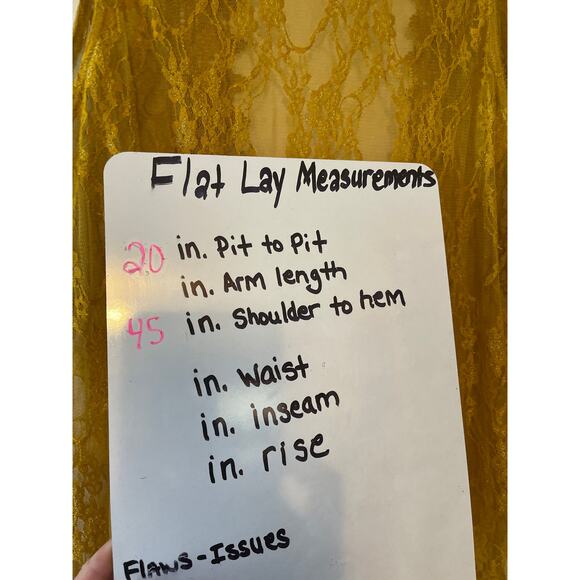 Flat Lay Measurements
20 in. Pit to Pit
in. Arm length
45 in. Shoulder to hem
in. Waist
in. inseam
in. rise
Flaws - Issues